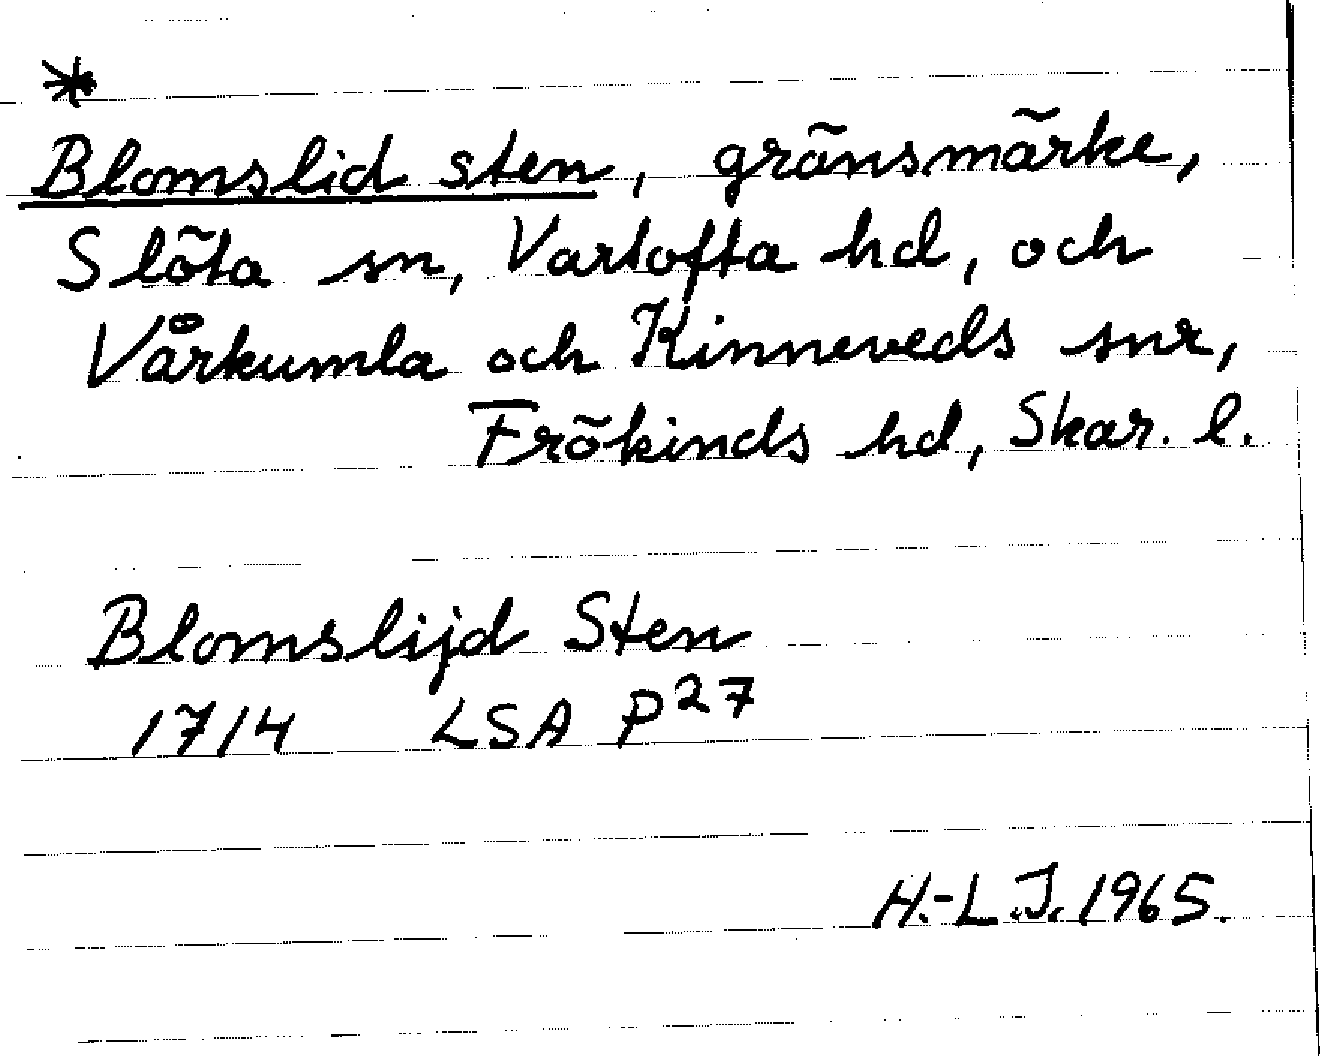 *
Blomslid sten, gränsmärke,
Slöta sn, Vartofta hd, och
Vårkumla och Kinneveds snr,
Frökinds hd, Skar. l.
Blomslijd Sten
1714 LSA P27
H.-L.J. 1965.